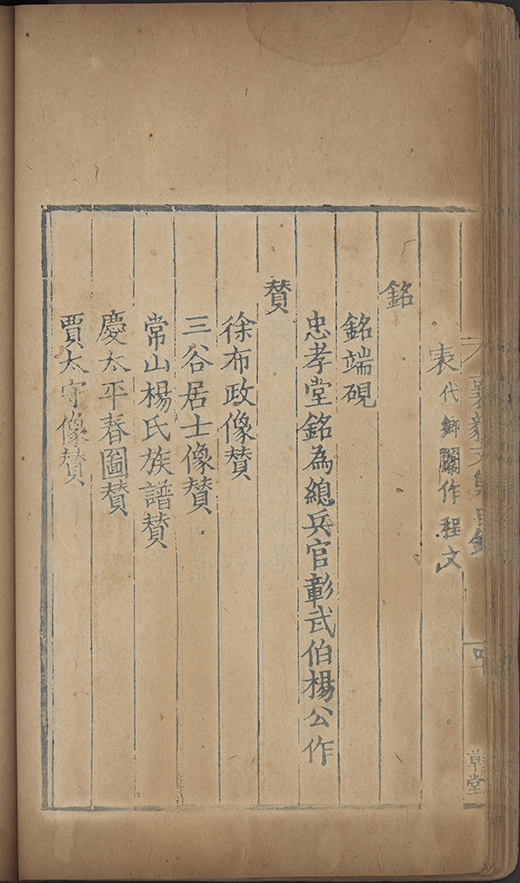 表 代鄉闈作程文
銘
銘端硯
忠孝堂銘為總兵官彰武伯楊公作
賛
徐布政像賛
三谷居士像賛
常山楊氏族譜賛
慶太平春圖賛
賈太守像賛
襄毅文集目錄
草堂